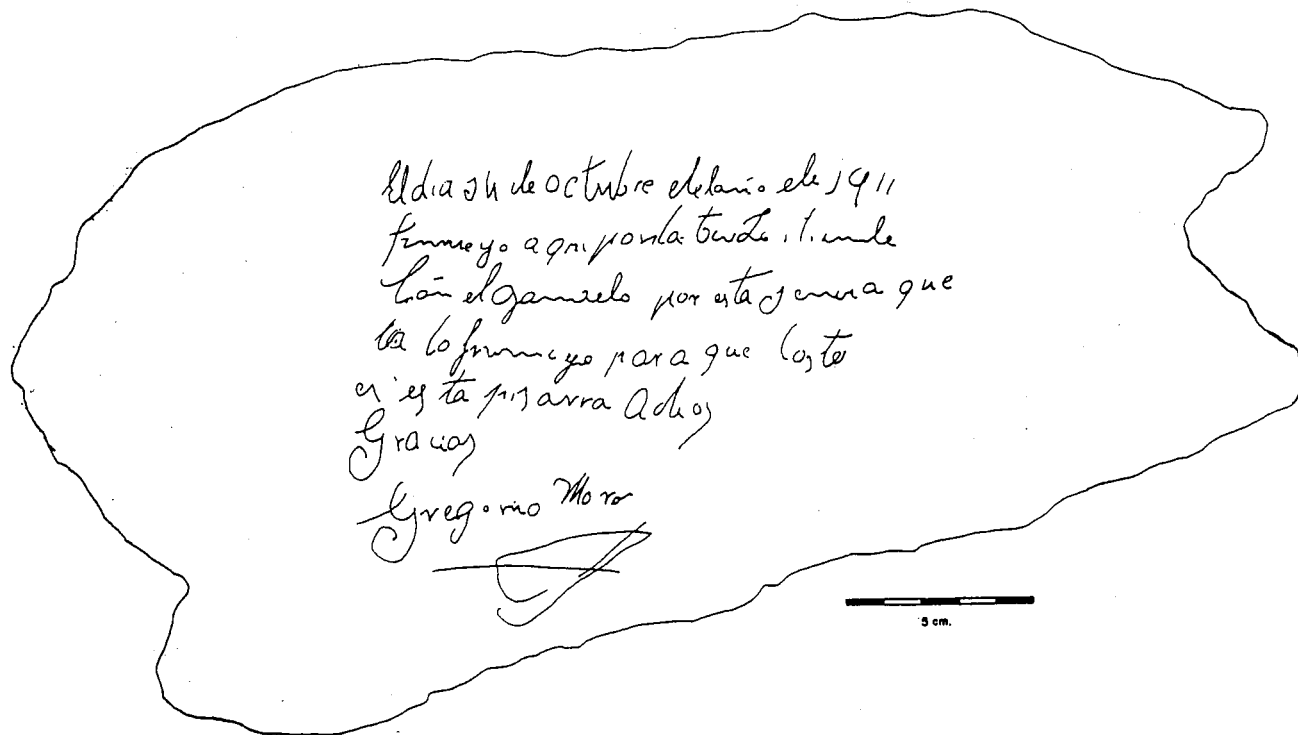 El dia 24 de octubre del año de 1911
firme yo aqui por la tarde
el ganuelo por esta que
lo firme yo para que coste
en esta pisarra Adios
Gracias
Gregorio Moro
5 cm.